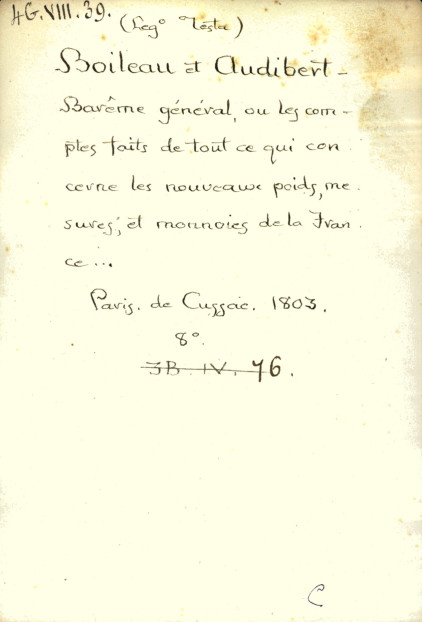 4G.VIII.39.
(Leg° Testa)
Boileau et Audibert -
Barême général, ou les com-
ptes faits de tout ce qui con
cerne les nouveaux poids, me.
sures, et monnoies de la Fran.
ce...
Paris. de Cussac. 1803.
8°.
3B. IV. 76.
C